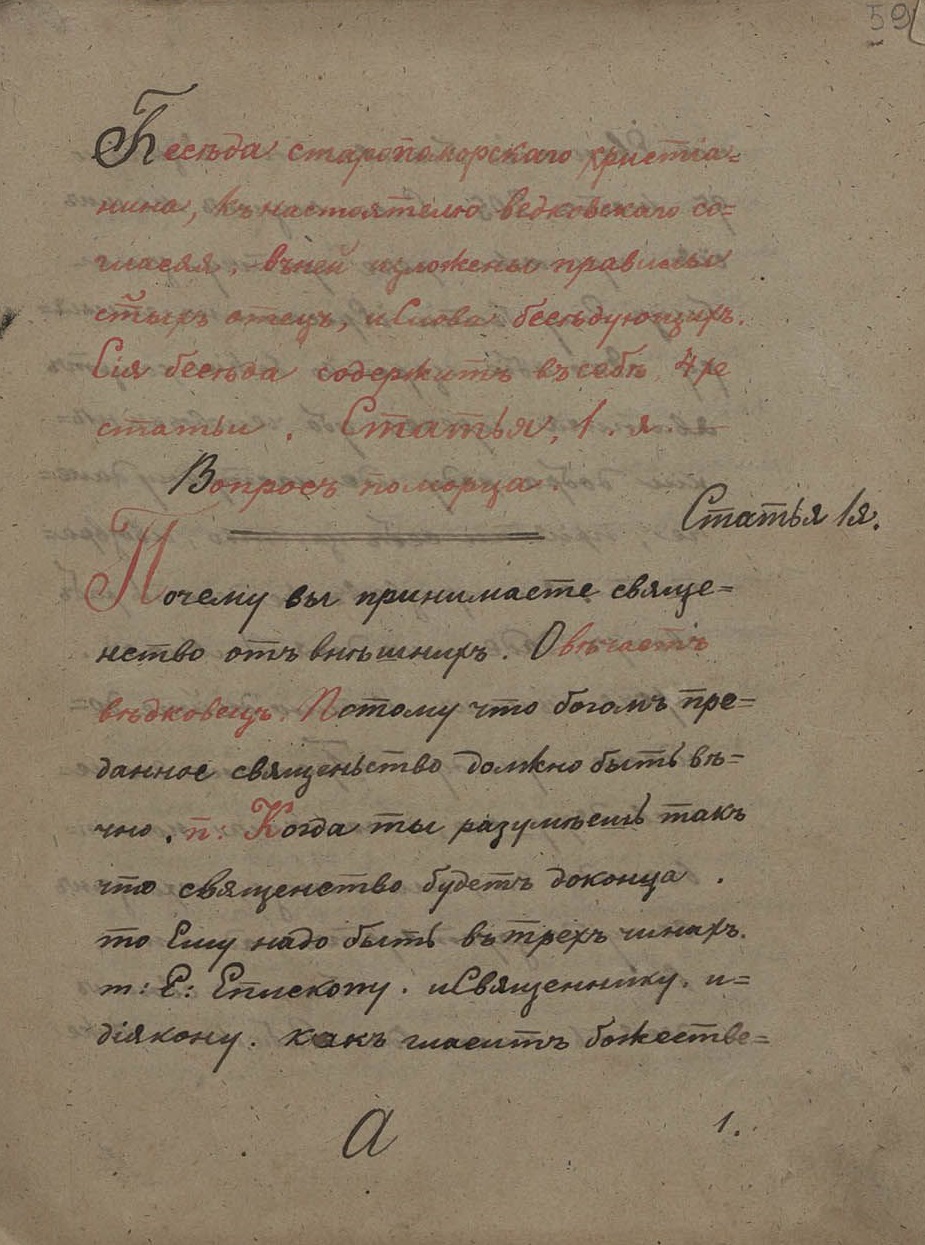 59
Бесѣда старопоморскаго христіа=
нина, къ настоятелю ведковскаго со=
гласяя, въ ней изложены правилы
стыхъ отецъ, и слова бесѣдующихъ.
Сія бесѣда содержитъ въ себѣ 4ре
статьи. Статья, 1.я.
Вопросъ поморца.
Статья 1я.
Почему вы принимаете свяще=
нство отъ внѣшнихъ. Овѣчаетъ
вѣдковецъ. Потому что богомъ пре=
данное священьство должно быть вѣ=
чно. п: Когда ты разумѣешь такъ
что священство будетъ доконца.
то Ему надо быть въ трехъ чинахъ.
т: Е: Епископу. и Священнику. и=
діякону. какъ гласитъ божестве=
а 1.